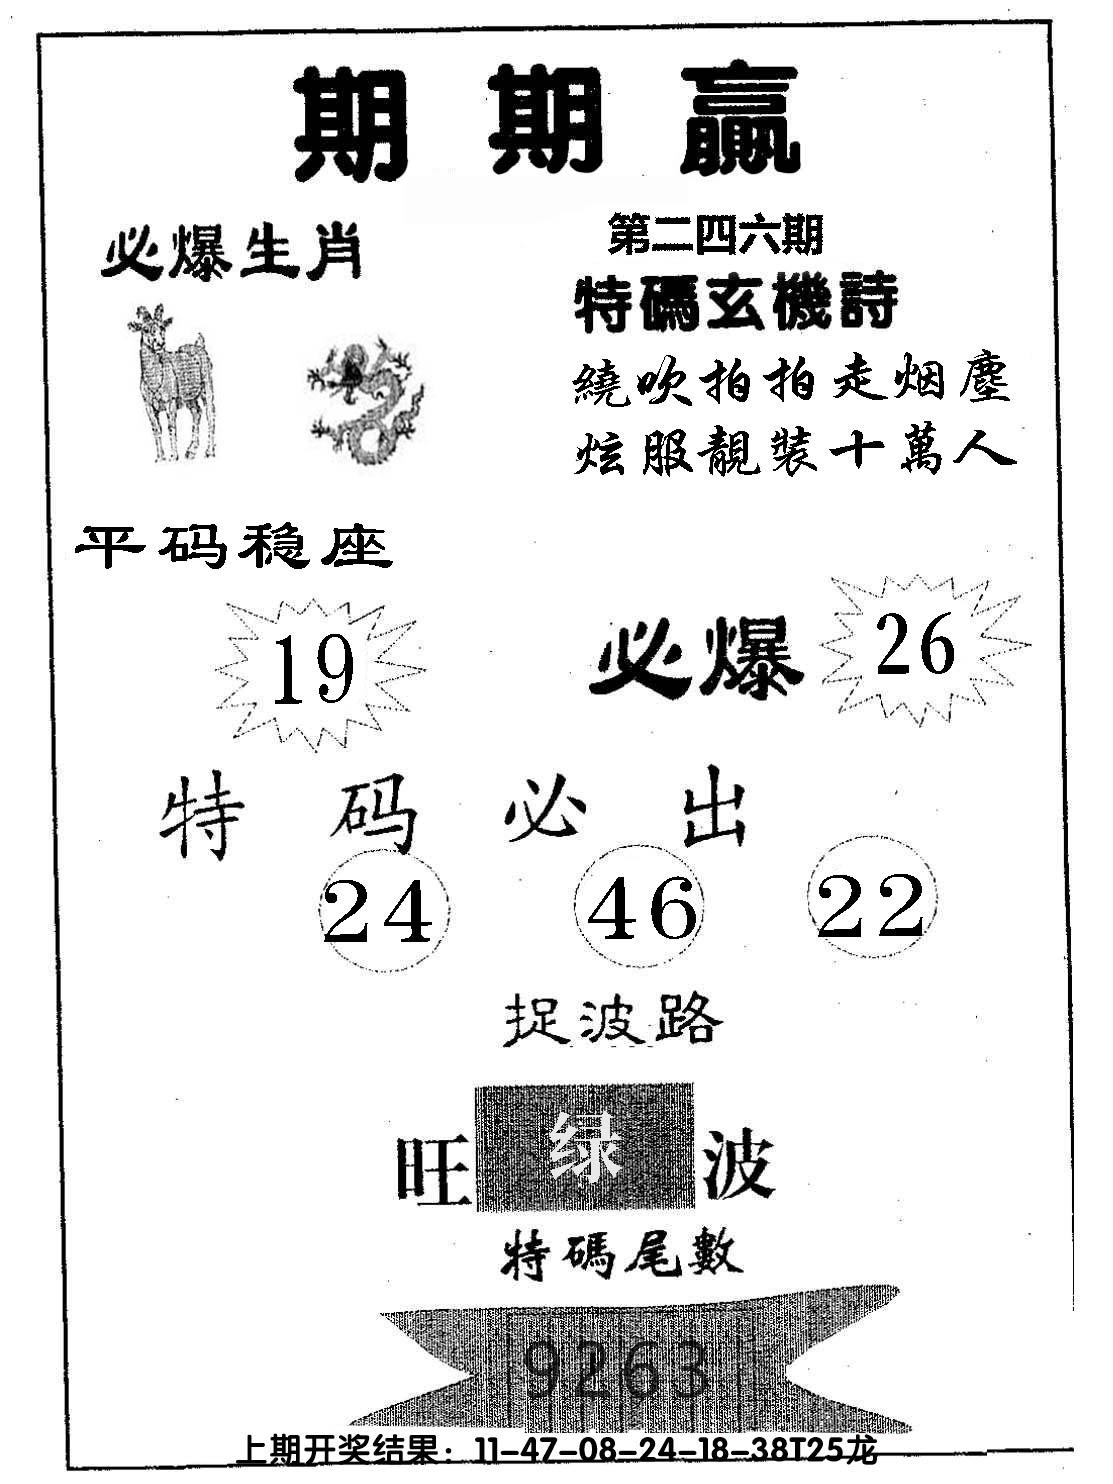 期期赢
必爆生肖
第二四六期
特碼玄機詩
繞吹拍拍走烟塵
炫服靚装十萬人
平码稳座
19
必爆
26
特码必出
24 46 22
捉波路
旺绿波
特碼尾數
9263
上期开奖结果：11-47-08-24-18-38T25龙